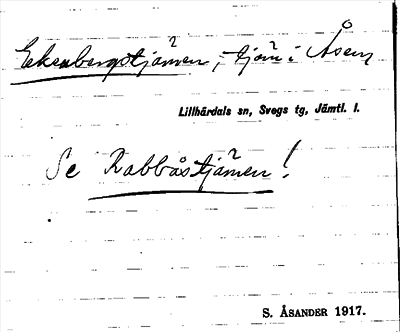 Ekenbergstjärnen, tjärn i Åsen
Lillhärdals sn, Svegs tg, Jämtl. l.
Se Rabbåstjärnen!
S. ÅSANDER 1917.